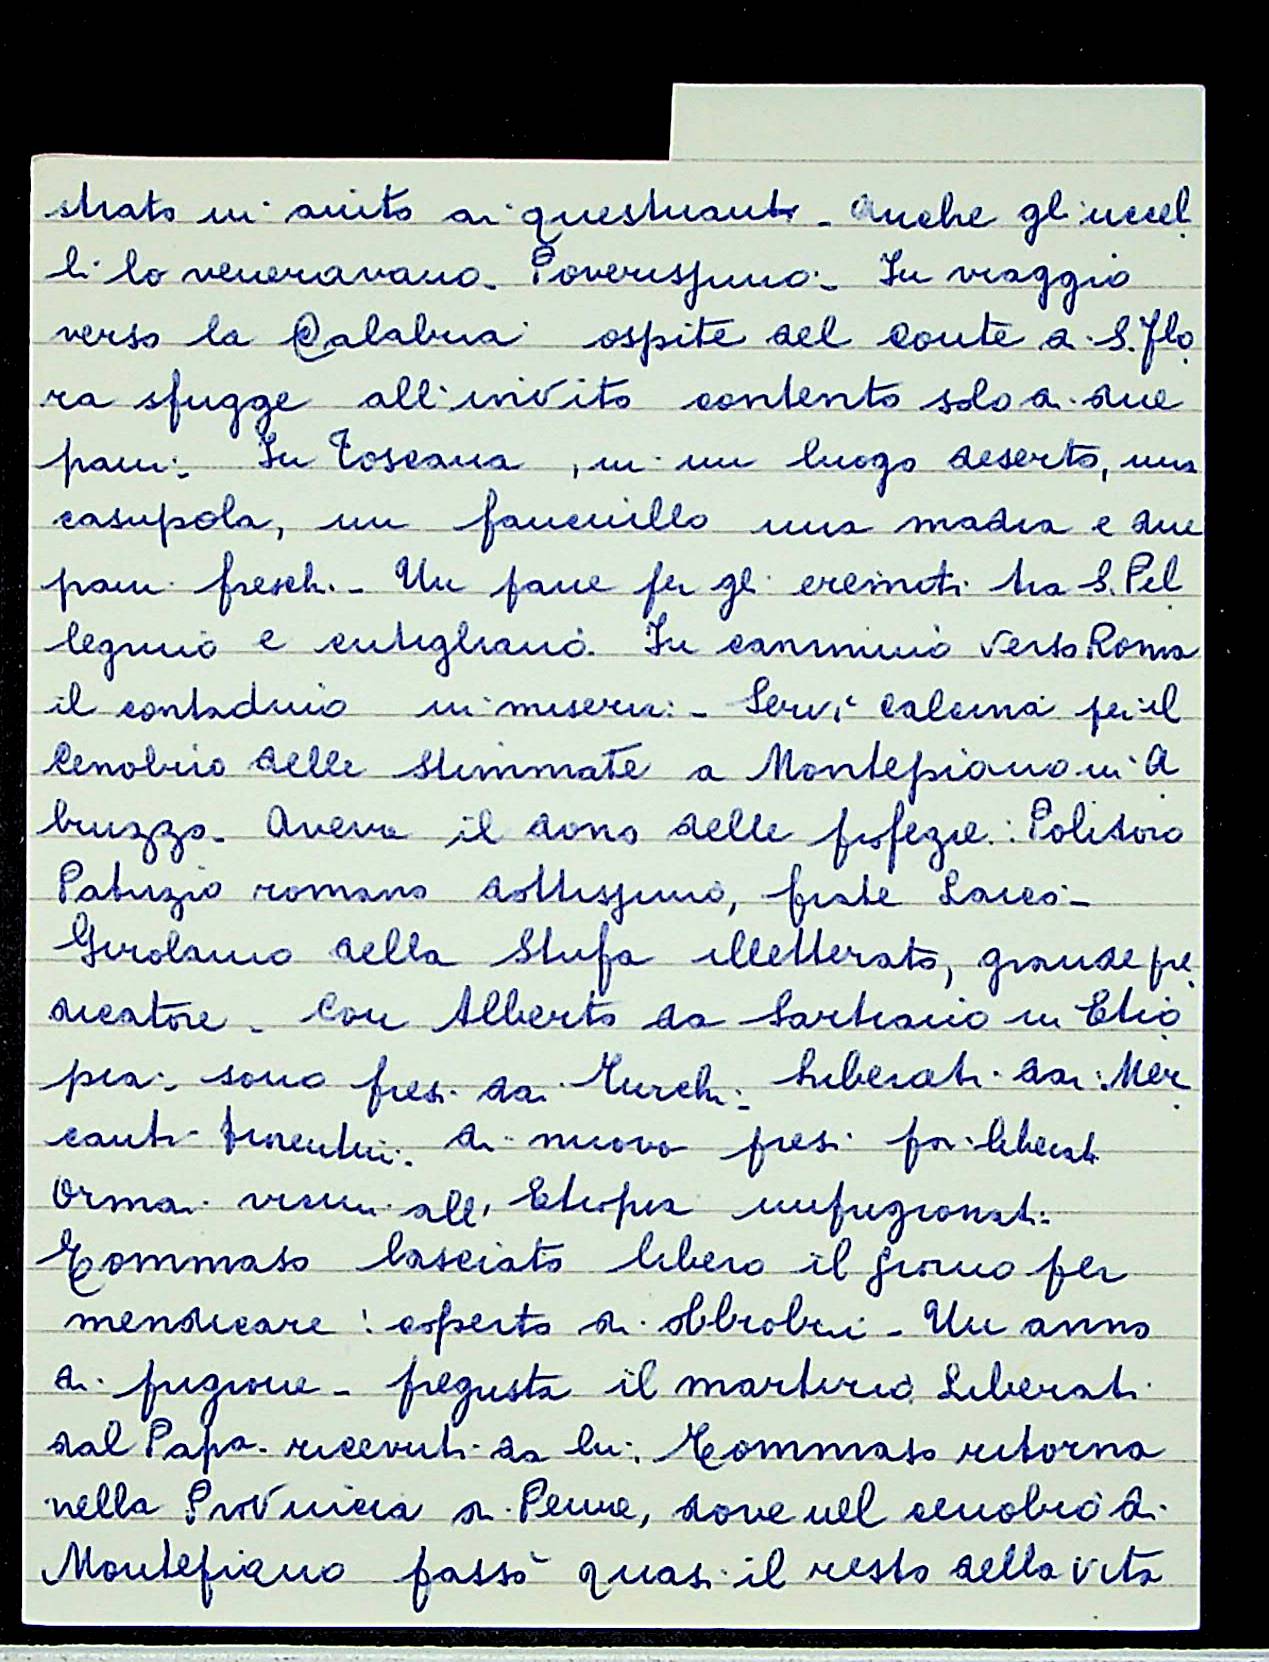 strato in aiuto ai questuanti - Anche gli uccel
li lo veneravano - Poverissimo - In viaggio
verso la Calabria ospite del Conte di S. Flo
ra sfugge all'invito contento solo di due
pani - In Toscana, in un luogo deserto, una
casupola, un fanciullo una madia e due
pani freschi - Un pane per gli eremiti tra S. Pel
legrino e Cutigliano. In cammino verso Roma
il contadino in miseria - Servì calcina per il
Cenobio delle Stimmate a Montepiano in A
bruzzo - Aveva il dono delle profezie: Polidoro
Patrizio romano dottissimo, frate Laico -
Girolamo della Stufa illetterato, grande pre
dicatore - Con Alberto da Sartiano in Etio
pia - sono presi dai Turchi - Liberati dai Mer
canti fiorentini. di nuovo presi poi liberati
Ormai vicini all'Etiopia imprigionati -
Tommaso lasciato libero il giorno per
mendicare: coperto di obbrobri - Un anno
di prigione - pregusta il martirio. Liberati
dal Papa - ricevuti da lui. Tommaso ritorna
nella Provincia di Penne, dove nel cenobio di
Montepiano passò quasi il resto della vita